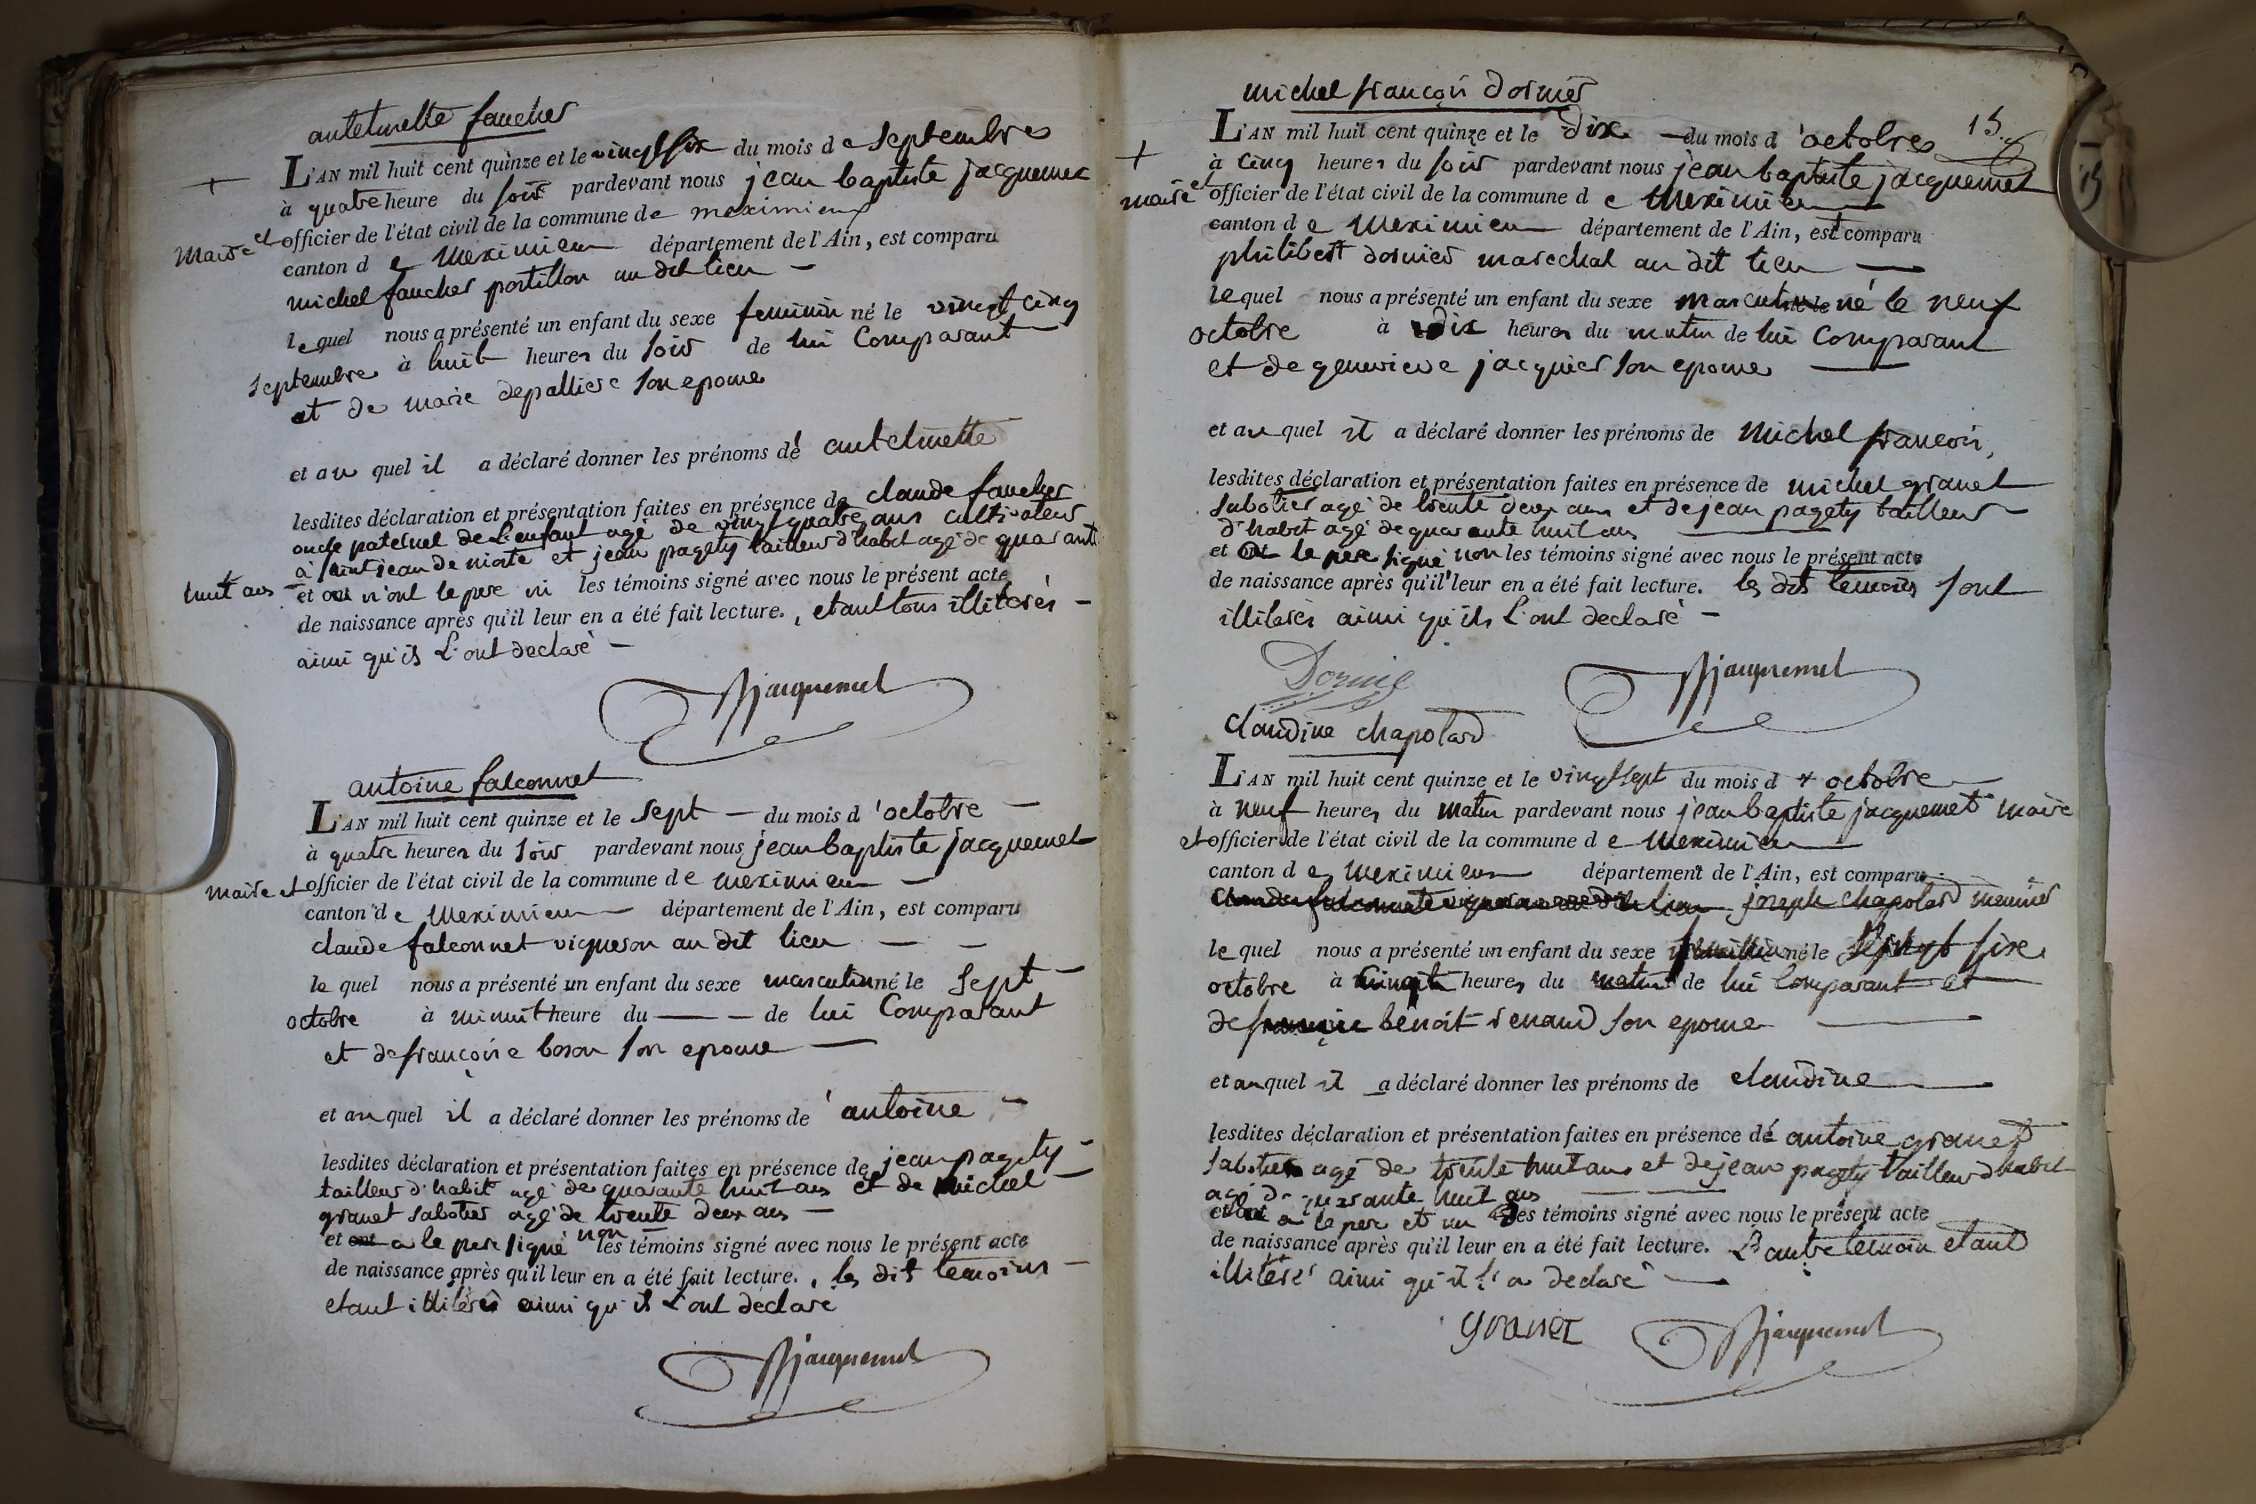 antelmette faucher
L'AN mil huit cent quinze et le vingt six du mois de Septembre
à quatre heure du soir pardevant nous jean baptiste jacquemet
Maire et officier de l'état civil de la commune de meximieux
canton de Meximieu département de l'Ain, est comparu
michel faucher postillon au dit lieu —
lequel nous a présenté un enfant du sexe feminin né le vingt cinq
septembre à huit heures du soir de lui Comparant
et de marie depalliere son epouse
et au quel il a déclaré donner les prénoms de antelmette
lesdites déclaration et présentation faites en présence de claude faucher
oncle paternel de L'enfant agé de vingt quatre ans cultivateur
à saint jean de niorte et jean pagety tailleur d'habit agé de quarante
huit ans et ont n'ont le pere ni les témoins signé avec nous le présent acte
de naissance après qu'il leur en a été fait lecture. , etant tous illiterés —
ainsi qu'ils L'ont declaré —
Jacquemet
antoine falconnet
L'AN mil huit cent quinze et le sept — du mois d'octobre —
à quatre heures du soir pardevant nous jean baptiste jacquemet
maire et officier de l'état civil de la commune de meximieu —
canton de Meximieu département de l'Ain, est comparu
claude falconnet vigneron au dit lieu — —
le quel nous a présenté un enfant du sexe masculin né le sept —
octobre à minuit heure du — — de lui Comparant
et de françoise boson son epouse —
et au quel il a déclaré donner les prénoms de antoine —
lesdites déclaration et présentation faites en présence de jean pagety —
tailleur d'habit agé de quarante huit ans et de michel —
granet sabotier agé de trente deux ans —
et ont a le pere signé non les témoins signé avec nous le présent acte
de naissance après qu'il leur en a été fait lecture. , les dit temoins —
etant illiterés ainsi qu'ils L'ont declaré
Jacquemet
15
michel françois Dornier
L'AN mil huit cent quinze et le dix — du mois d'octobre
à cinq heures du soir pardevant nous jean baptiste jacquemet
maire et officier de l'état civil de la commune de Meximieu
canton de Meximieu département de l'Ain, est comparu
philibert dornier marechal au dit lieu —
lequel nous a présenté un enfant du sexe masculin né le né le neuf
octobre à dix heures du matin de lui Comparant
et de genevieve jacquier son epouse —
et au quel il a déclaré donner les prénoms de Michel françois,
lesdites déclaration et présentation faites en présence de michel granet
sabotier agé de trente deux ans et de jean pagety tailleur —
d'habit agé de quarante huit ans —
et ont le pere signé non les témoins signé avec nous le présent acte
de naissance après qu'il leur en a été fait lecture. les dits temoins sont
illiterés ainsi qu'ils L'ont declaré —
Dornié
Jacquemet
Claudine chapolard
L'AN mil huit cent quinze et le vingt sept du mois d'octobre —
à neuf heures du matin pardevant nous jean baptiste jacquemet maire
et officier de l'état civil de la commune de Meximieu
canton de Meximieu département de l'Ain, est comparu
claude falconnet vigneron au dit lieu joseph chapolard meunier
le quel nous a présenté un enfant du sexe né le six
octobre à heures du matin de lui Comparant et
de françoise benoit renaud son epouse —
et au quel il a déclaré donner les prénoms de claudine —
lesdites déclaration et présentation faites en présence de antoine granet
sabotier agé de trente huit ans et de jean pagety tailleur d'habit
agé de quarante huit ans —
et ont a le pere et un des témoins signé avec nous le présent acte
de naissance après qu'il leur en a été fait lecture. L'autre temoin etant
illiteré ainsi qu'il l'a declaré —
granet
Jacquemet